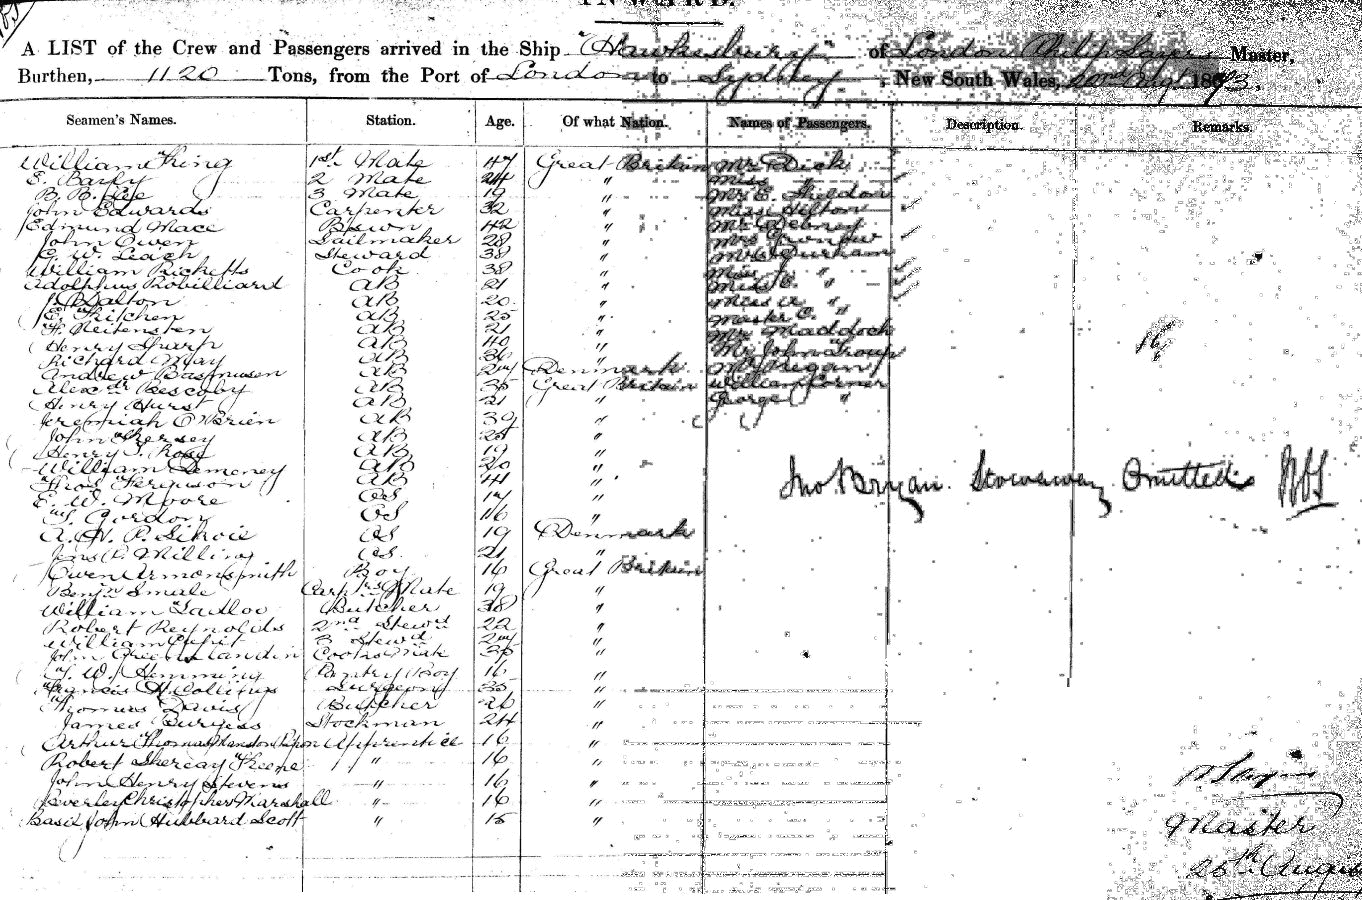 INWARD.
A LIST of the Crew and Passengers arrived in the Ship "Hawkesbury" of London Philip Master,
Burthen, 1120 Tons, from the Port of London to Sydney, New South Wales, Augt 1873.
Seamen's Names. Station. Age. Of what Nation. Names of Passengers. Description. Remarks.
William King 1st Mate 47 Great Britain Mr Dick
E. Bayly 2 Mate 24 " Miss "
B. B. Lee 3 Mate 19 " Mr E. Sheldon
John Edwards Carpenter 32 " Miss Hilton
Edmund Mace Bswn 42 " Mr Debney
John Owen Sailmaker 28 " Mrs
C. W. Leach Steward 38 " Mrs Durham
William Ricketts Cook 38 " Miss J. "
Adolphus Robilliard AB 21 " Miss E. "
J. Dalton AB 20 " Miss A "
E. Kitchen AB 25 " Master C. "
F. Reitensten AB 21 " Mr Maddock
Henry Sharp AB 40 " Mr John Troup
Richard May AB 36 "
Andrew Rasmusen AB 24 Denmark Mr Regan
Alexdr Bescoby AB 35 Great Britain William Corner
Henry Hurst AB 21 " George "
Jeremiah O'Brien AB 39 "
John Kersey AB 25 "
Henry J. Rose AB 19 "
William Demeney AB 20 "
Jno Bryan. Stowaway Omitted
Thos Ferguson AB 41 "
E. W. Moore OS 17 "
T. Gordon OS 16 "
A. H. P. OS 19 Denmark
Jens P. Milling OS 21 "
Owen Armonsmith Boy 16 Great Britain
Benjn Smale Carptrs Mate 19 "
William Tadloo Butcher 38 "
Robert Reynolds 2nd Stewd 22 "
William 3 Stewd 24 "
John Greenslandin Cooks Mate 25 "
T. W. Hemming Pantry Boy 16 "
Francis H. Collings Surgeon 35 "
Thomas Davis Butcher 26 "
James Burgess Stockman 24 "
Arthur Thomas Apprentice 16 "
Robert Keene " 16 "
John Henry Stevens " 16 "
Beverley Christopher Marshall " 16 "
Basil John Hubbard Scott " 15 "
Master
25th August